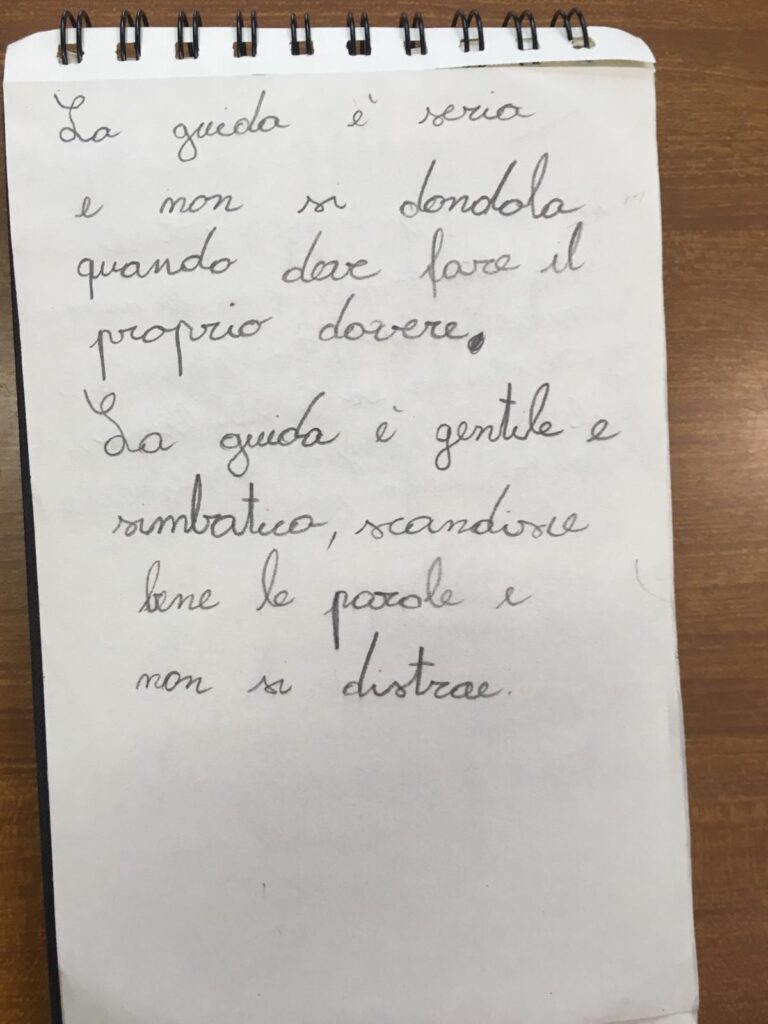 La guida è seria
e non si dondola
quando deve fare il
proprio dovere.
La guida è gentile e
simbatica, scandisce
bene le parole e
non si distrae.